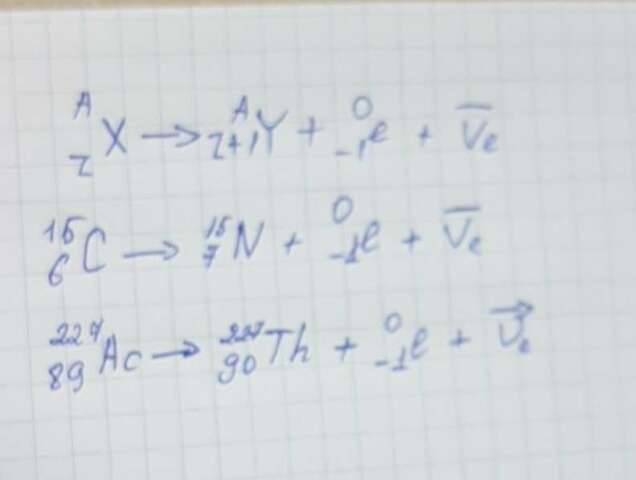 ᴬ_Z X → ᴬ_Z+1 Y + ⁰_-1 e + V̅ₑ
¹⁵₆C → ¹⁵₇N + ⁰₋₁e + V̅ₑ
²²⁷₈₉Ac → ²²⁷₉₀Th + ⁰₋₁e + V⃗ₑ